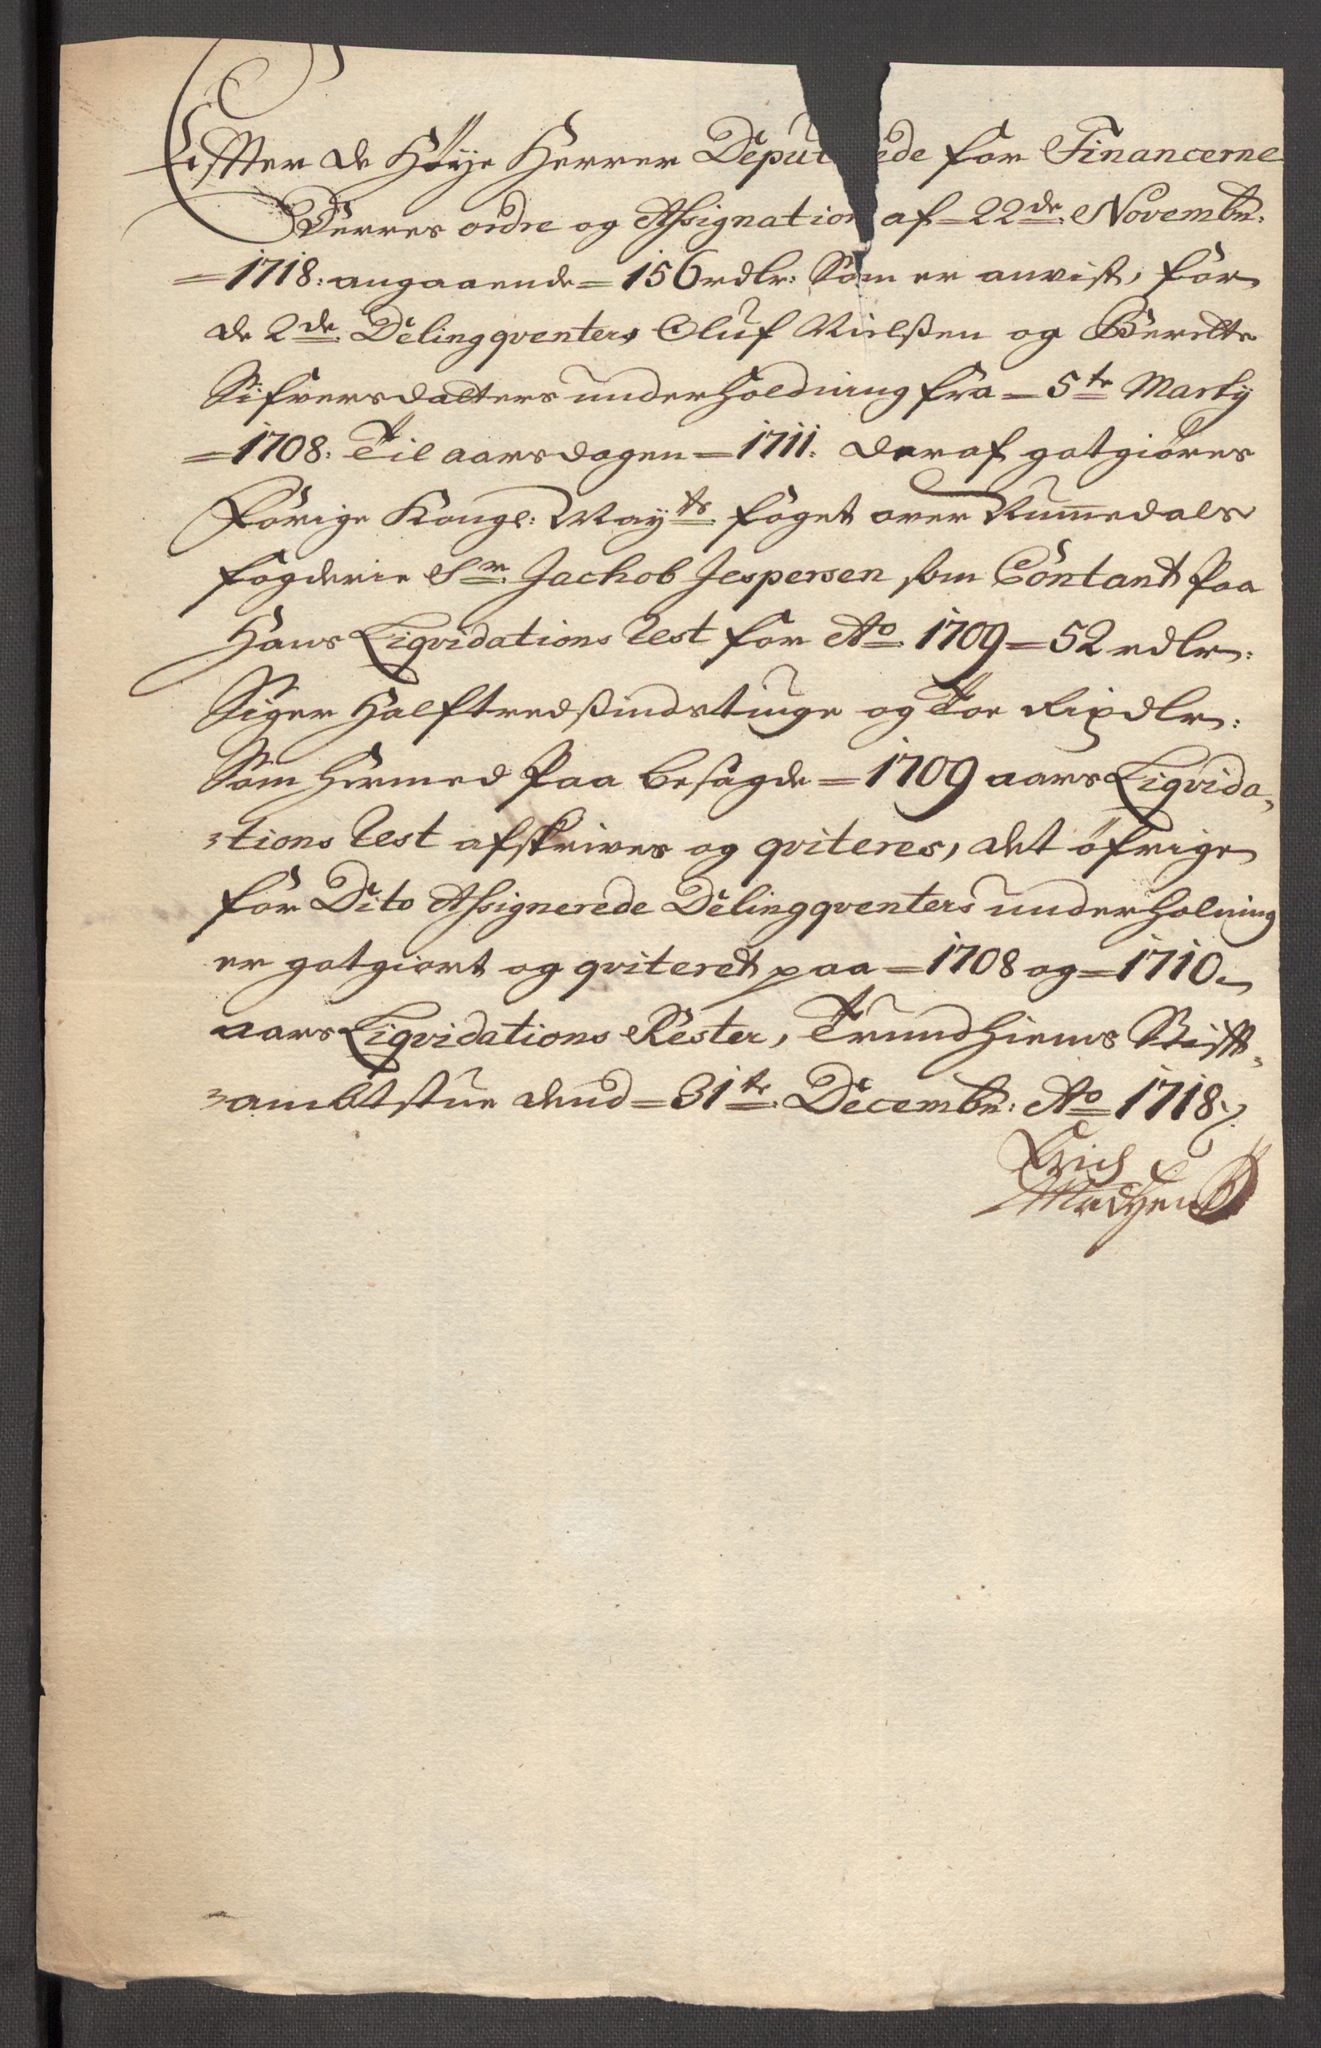 Effter de Høye Herrer Deput ede for Financerne
Derres ordre og Assignation af 22de Novembr:
= 1718: angaaende = 156 rdlr: Som er anvist, for
de 2de Delingqventers Oluf Nielssen og Beritte
Sifversdatters underholdning fra = 5te Marty
= 1708: Til aarsdagen = 1711. deraf gotgiøres
Forige Kongl: Mayts foget over Nummedals
fogderie Sr. Jachob Jespersen, som Contant paa
Hans Liqvidations Rest for Ao 1709 = 52 rdlr:
Siger Halftredssindstiuge og Toe Rixdlr:
Som hermed paa besagde = 1709 aars Liqvida-
-tions Rest afskrives og qviteres, det øfrige
for Dito Assignerede Delingqventers underholning
er gotgiort og qviteret paa = 1708 og = 1710
aars Liqvidations Rester, Trundhiems Stifft-
-ambtstue dend = 31te Decembr: Ao 1718 ./.
Erich
Madsen